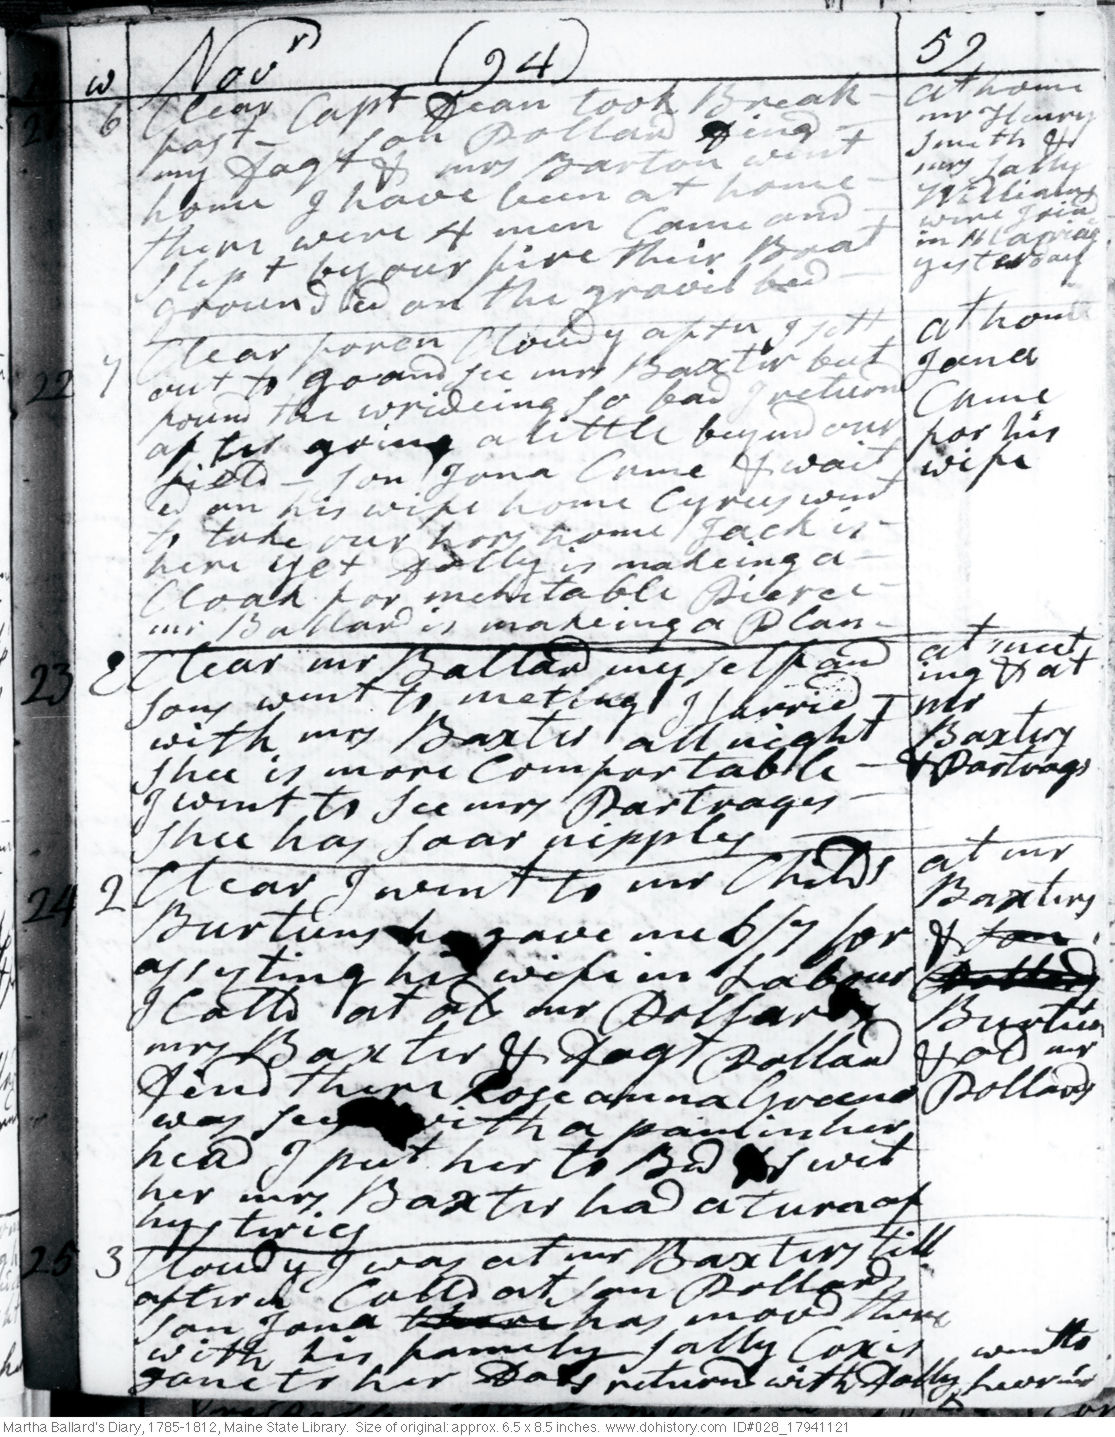 w Novr (94) 52
21 6 Clear Capt Dean took Break-
fast- son Pollard dind -
my dagt & mrs Barton went
home I have been at home -
there were 4 men Came and -
slept by our fire their Boat
grounded on the gravil bed
at home
mr Henry
Smith &
mrs Sally
Williams
were joind
in Marriag
yesterday
22 7 Clear foren Cloudy aftn I sett
out to go and see mrs Baxter but
found the wrideing so bad I return
after going a little beyond our
field - son Jona Came & wait
ed on his wife home Cyrus went
to take our hors home Jack is -
here yet Dolly is makeing a -
Cloak for mehitable Pierce -
mr Ballard is makeing a Plan -
at home
Jona
Came
for his
wife
23 E Clear mr Ballard my self and
sons went to meting I tarried
with mrs Baxter all night
shee is more Comfortable -
I went to see mrs Partrages -
shee has soar nipples
at meet
ing & at
mr
Baxters
& Partrags
24 2 Clear I went to mr Childs
Burtuns he gave me 6/7 for
assysting his wife in Labour
I Calld at old mr Pollards
mrs Baxter & dagt Pollard
dind there Roseanna Greens
was with a pain in her
head I put her to Bed wet
her mrs Baxter had a turn of
hysterics
at mr
Baxters
& son
Pollards
Burtuns
& old mr
Pollards
25 3 Cloudy I was at mr Baxters till
aftern Calld at son Pollards
son Jona has movd there
with his family Sally Cox is
gone to her Dads return with Dolly hear
went to
Martha Ballard's Diary, 1785-1812, Maine State Library. Size of original: approx. 6.5 x 8.5 inches. www.dohistory.com ID#028_17941121